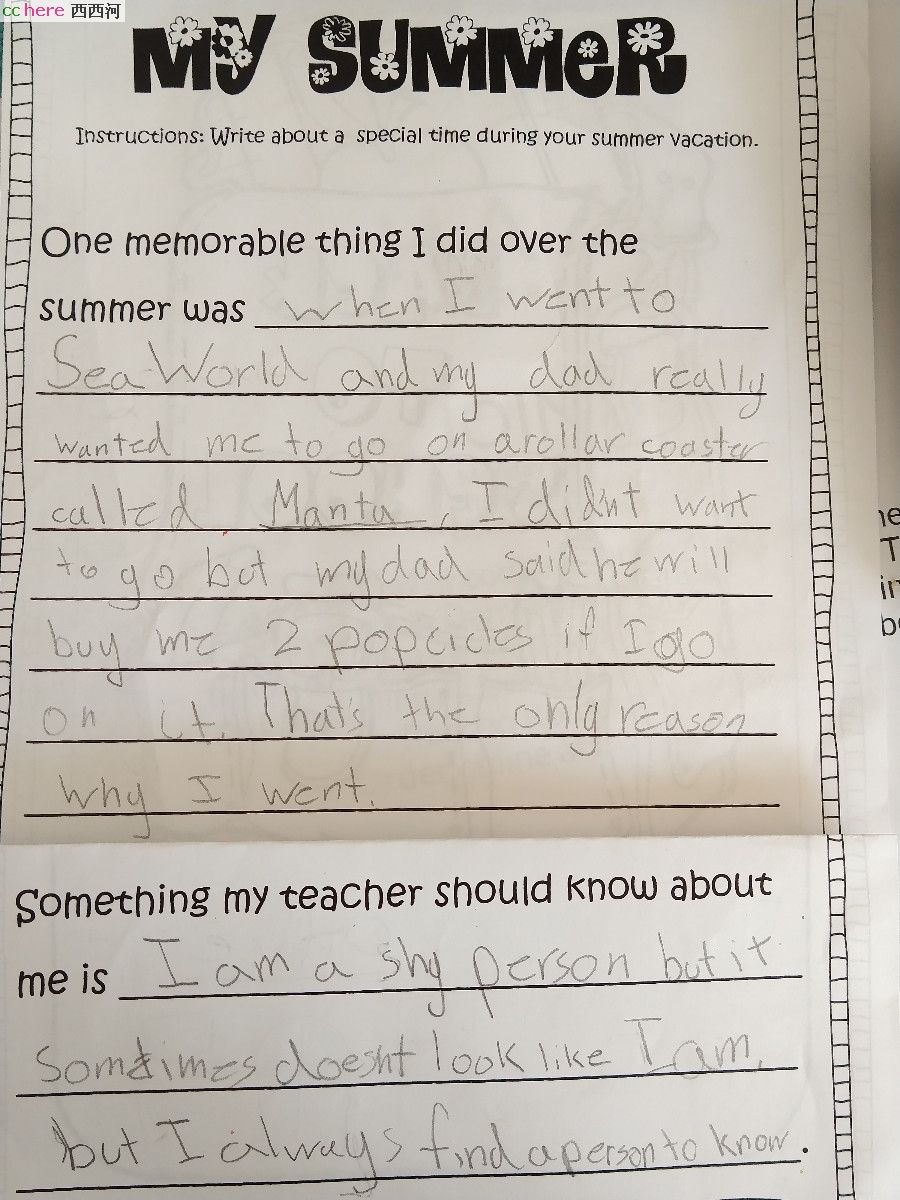 cchere 西西河
My SUMMeR
Instructions: Write about a special time during your summer vacation.
One memorable thing I did over the
summer was when I went to
Sea World and my dad really
wanted me to go on a rollar coaster
called Manta, I didn't want
to go but my dad said he will
buy me 2 popcicles if I go
on it. That's the only reason
why I went.
Something my teacher should know about
me is I am a shy person but it
Sometimes doesn't look like I am.
but I always find a person to know.